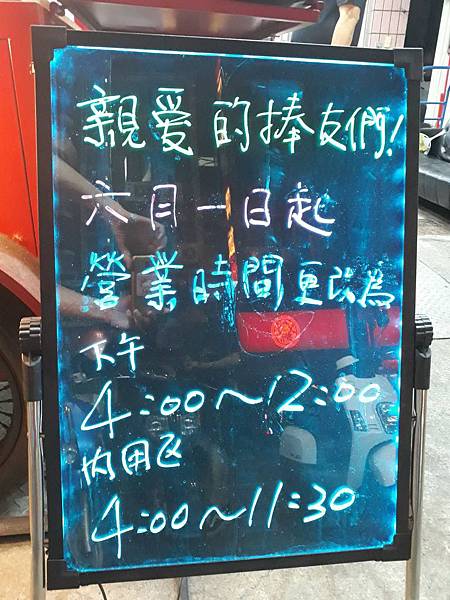 親愛的捧友們!
六月一日起
營業時間更改為
下午
4:00~12:00
內用區
4:00~11:30